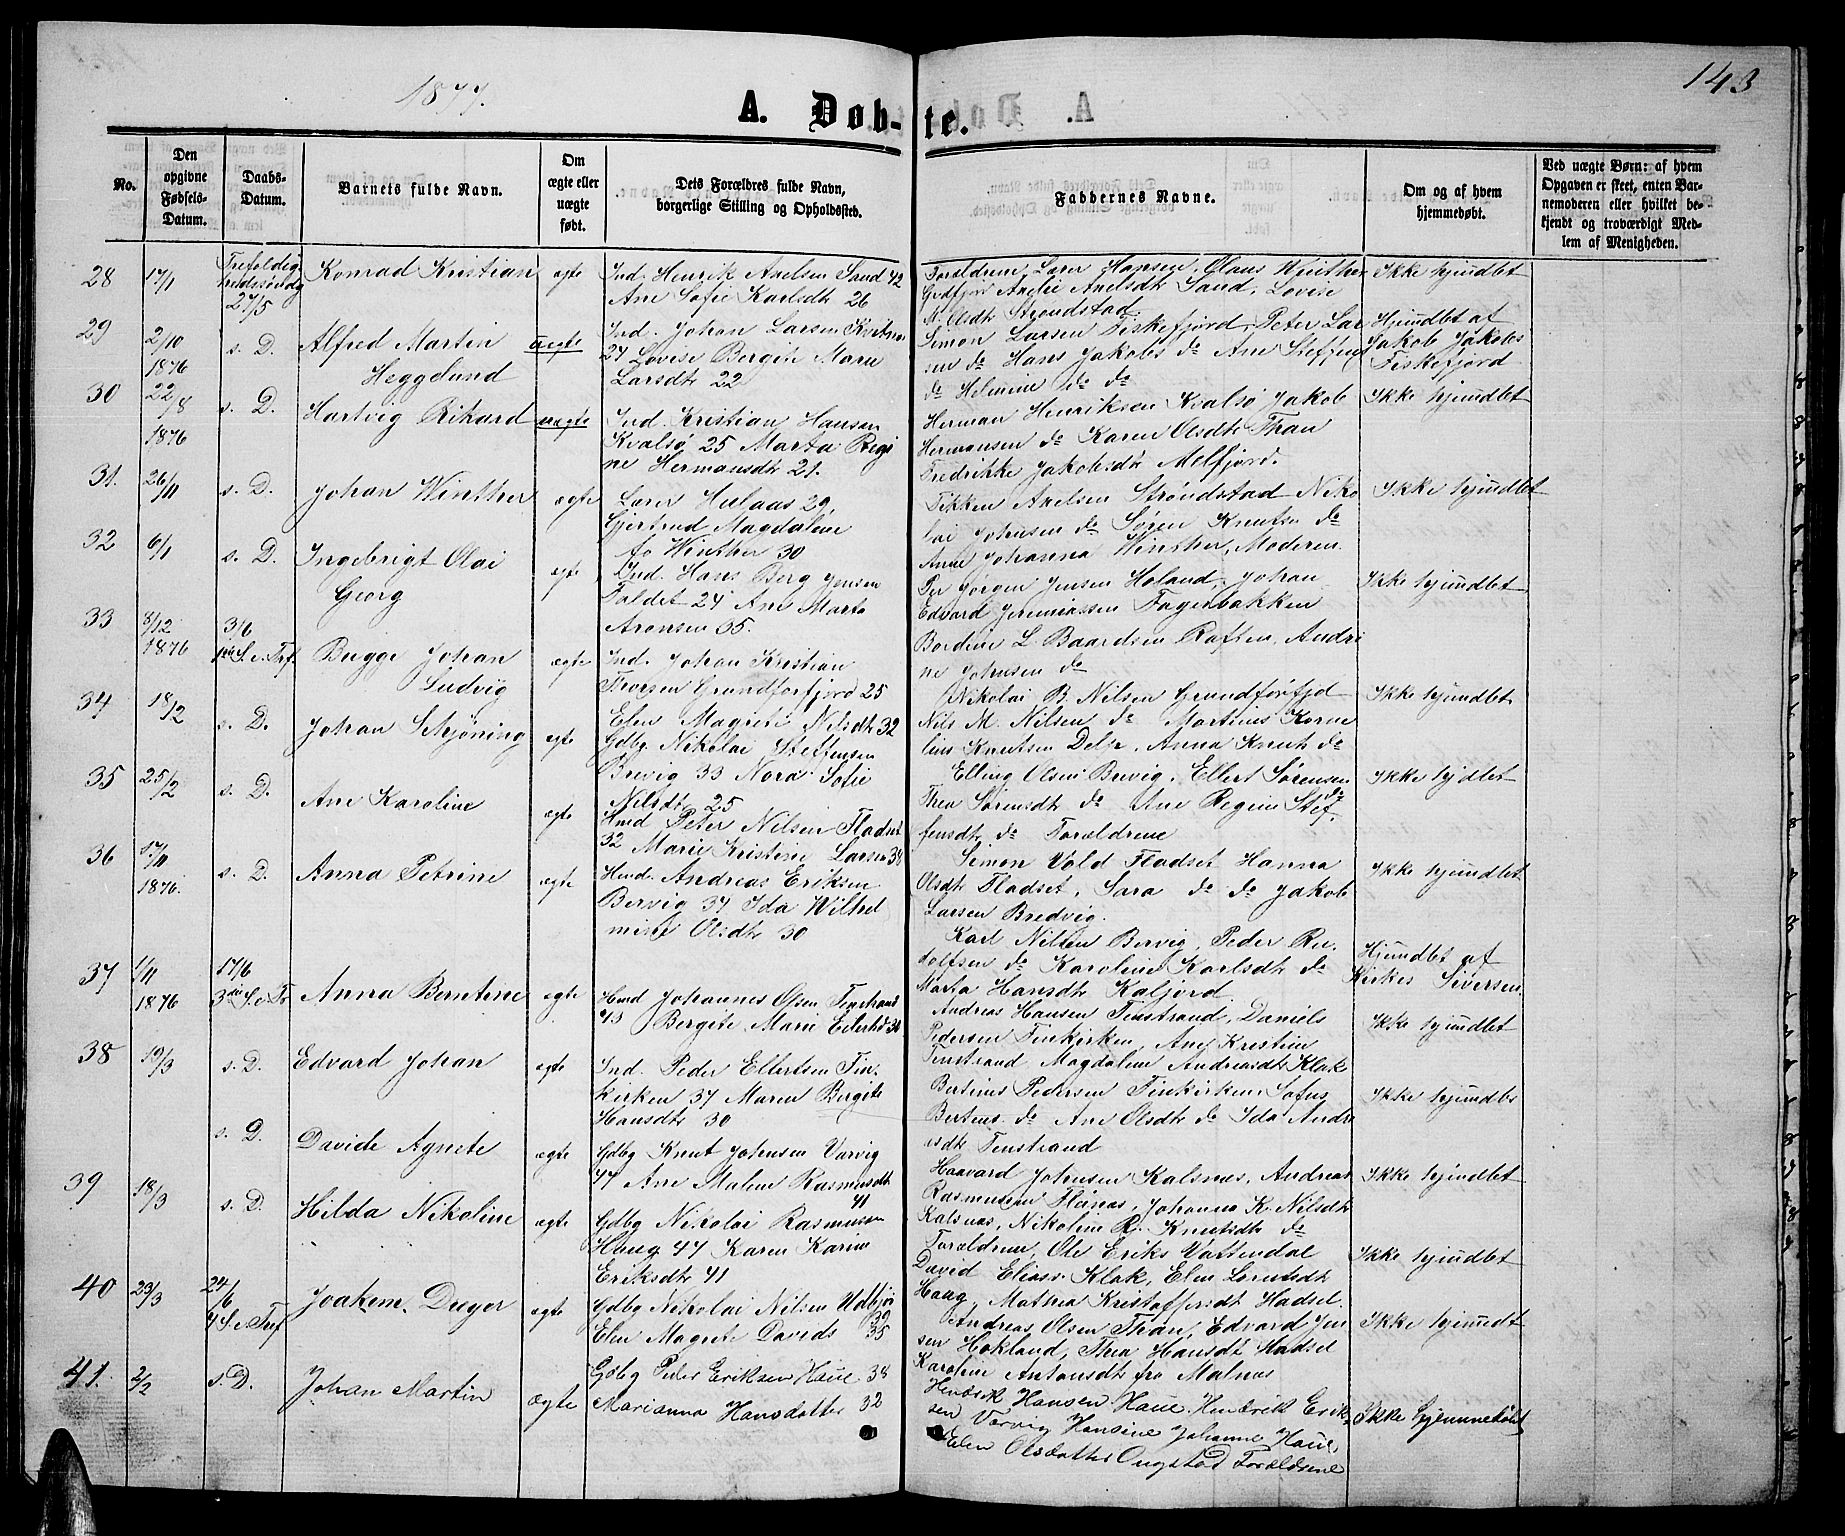 1877.
143
A. Døb-te.
No.
Den opgivne Fødsels-Datum.
Daabs-Datum.
Barnets fulde Navn.
Om ægte eller uægte født.
Dets Forældres fulde Navn, borgerlige Stilling og Opholdssted.
Faddernes Navne.
Om og af hvem hjemmedøbt.
Ved uægte Børn: af hvem Opgaven er skeet, enten Barnemoderen eller hvilket bekjendt og troværdigt Medlem af Menigheden.
28 17/1 27/5 Konrad Kristian ægte
Ind. Henrik Axelsen Sand 42
Ane Sofie Karlsdtr 26
Forældrene, Lærer Hansen, Olaus Winther
Amelie Axelsdtr Sand, Lovise
M. Olsdtr Strøndstad.
Ikke hjmdbt
29 2/10 1876 s. D. Alfred Martin Heggelund uægte
Ind. Johan Larsen
24 Lovise Bergin Marie
Larsdtr 22
Simon Larsen Fiskefjord, Peter Lar
sen do Hans Jakobs do Ane Steffens
do Helmine do do
Hjmdbt af
Jakob Jakobs
Fiskefjord
30 22/8 1876 s. D. Hartvig Rikard uægte
Ind. Kristian Hansen
Kvalsø 25 Marta Regi
ne Hermansdtr 21.
Herman Henriksen Kvalsø Jakob
Hermansen do Karen Olsdtr Than
Fredrikke Jakobsdtr Melfjord.
Ikke hjmdbt
31. 26/11 s. D. Johan Winther ægte
Lærer Hulaas 29
Gjertrud Magdalene
Winther 30
Tikken Axelsen Strøndstad Niko
lai Johnsen do Søren Knuts do
Ane Johanna Winther, Moderen.
Ikke hjmdbt
32 6/1 s. D. Ingebrigt Olai Georg ægte
Ind. Hans Berg Jensen
Faldet 24 Ane Marta
Aronsen 35.
Per Jørgen Jensen Holand, Johan
Edvard Jeremiassen Fagerbakken
Bordine L Baardsen Raften, Andri
ne Johnsen do
Ikke hjmdbt
33 8/12 1876 3/6 Bugge Johan Ludvig ægte
Ind. Johan Kristian
Thorsen Grundforfjord 25
Elen Magrete Nilsdtr 32
Nikolai B. Nilsen Grundforfjd
Nils M. Nilsen do Martinus Korne
lius Knutsen Delp. Anna Knuts do
Ikke hjmdbt
34 18/2 s. D. Johan Schjøning ægte
Gdbg. Nikolai Steffensen
Brevig 33 Nora Sofie
Nilsdtr 25
Elling Olsen Brevig, Ellert Sørensen
Thea Sørensdtr do Ane Regine Stef
fensdtr do Forældrene
Ikke hjdbt
35 25/2 s. D. Ane Karoline ægte
Hmd Peter Nilsen Fladset
32 Marie Kristine Larsen 38
Simon Vold Fladset Hanna
Olsdtr Fladset, Sara do do Jakob
Larsen Bredvig.
Ikke hjmdbt
36 17/11 1876. s. D. Anna Petrine ægte
Hmd. Andreas Eriksen
Bervig 37 Ida Wilhel
mine Olsdtr 30
Karl Nilsen Bervig, Peder Ru
dolfsen do Karoline Karlsdtr do
Marta Hansdtr Kaljord
Hjmdbt af
Kirkes Siversen
37 1/11 1876 17/6 Anna Berntine ægte
Hmd Johannes Olsen Finstrand
43 Bergite Marie
Andreas Hansen Finstrand, Daniels
Pedersen Finkirken, Ane Kristine
Finstrand Magdalene Andreasdtr Klak
Ikke hjmdbt
38 19/3 s. D. Edvard Johan ægte
Ind. Peder Ellertsen Fin.
kirken 37 Maren Bergite
Hansdtr 30
Bertinus Pedersen Finkirken, Sofus
Bertens. do Ane Olsdtr do Ida Andre
asdtr Finstrand
Ikke hjmdbt
s. D. Davide Agnete ægte
Gdbg Knut Johnsen Varvig
47 Ane Malene Rasmusdtr
41
Haavard Johnsen Kalsnes, Andreas
Rasmussen Johanna K. Nilsdtr
Kalsnes, Nikoline R. Knutsdtr do
Ikke hjmdbt
39 18/3 s. D. Hilda Nikoline ægte
Gdbg Nikolai Rasmussen
Haug 47 Karen Karine
Eriksdtr 41
Forældrene, Ole Eriks Vattendal
David Elias. Klak, Elen Lorntsdtr
Haag, Mathea Kristoffersdtr Hadsel.
Ikke hjmdbt
40 23/3 24/6 Joakem. Duger ægte
Gdbg Nikolai Nilsen
39
Elen Magrete Davids 35
Andreas Olsen Than, Edvard Jen
sen Hokland, Thea Hansdt Hadsel
Karoline Antonsdt fra Malnes
Ikke hjmdt
41. 2/2 s. D. Johan Martin ægte
Gdbg Peder Eriksen Haue 34
Marianna Hansdatter 32
Hendrik Hansen Haue Hendrik Erik-
sen Varvig Hansine Johanne Haue,
Elen Olsdatter Ongstad Forældrene
Ikke hjemmedøbt